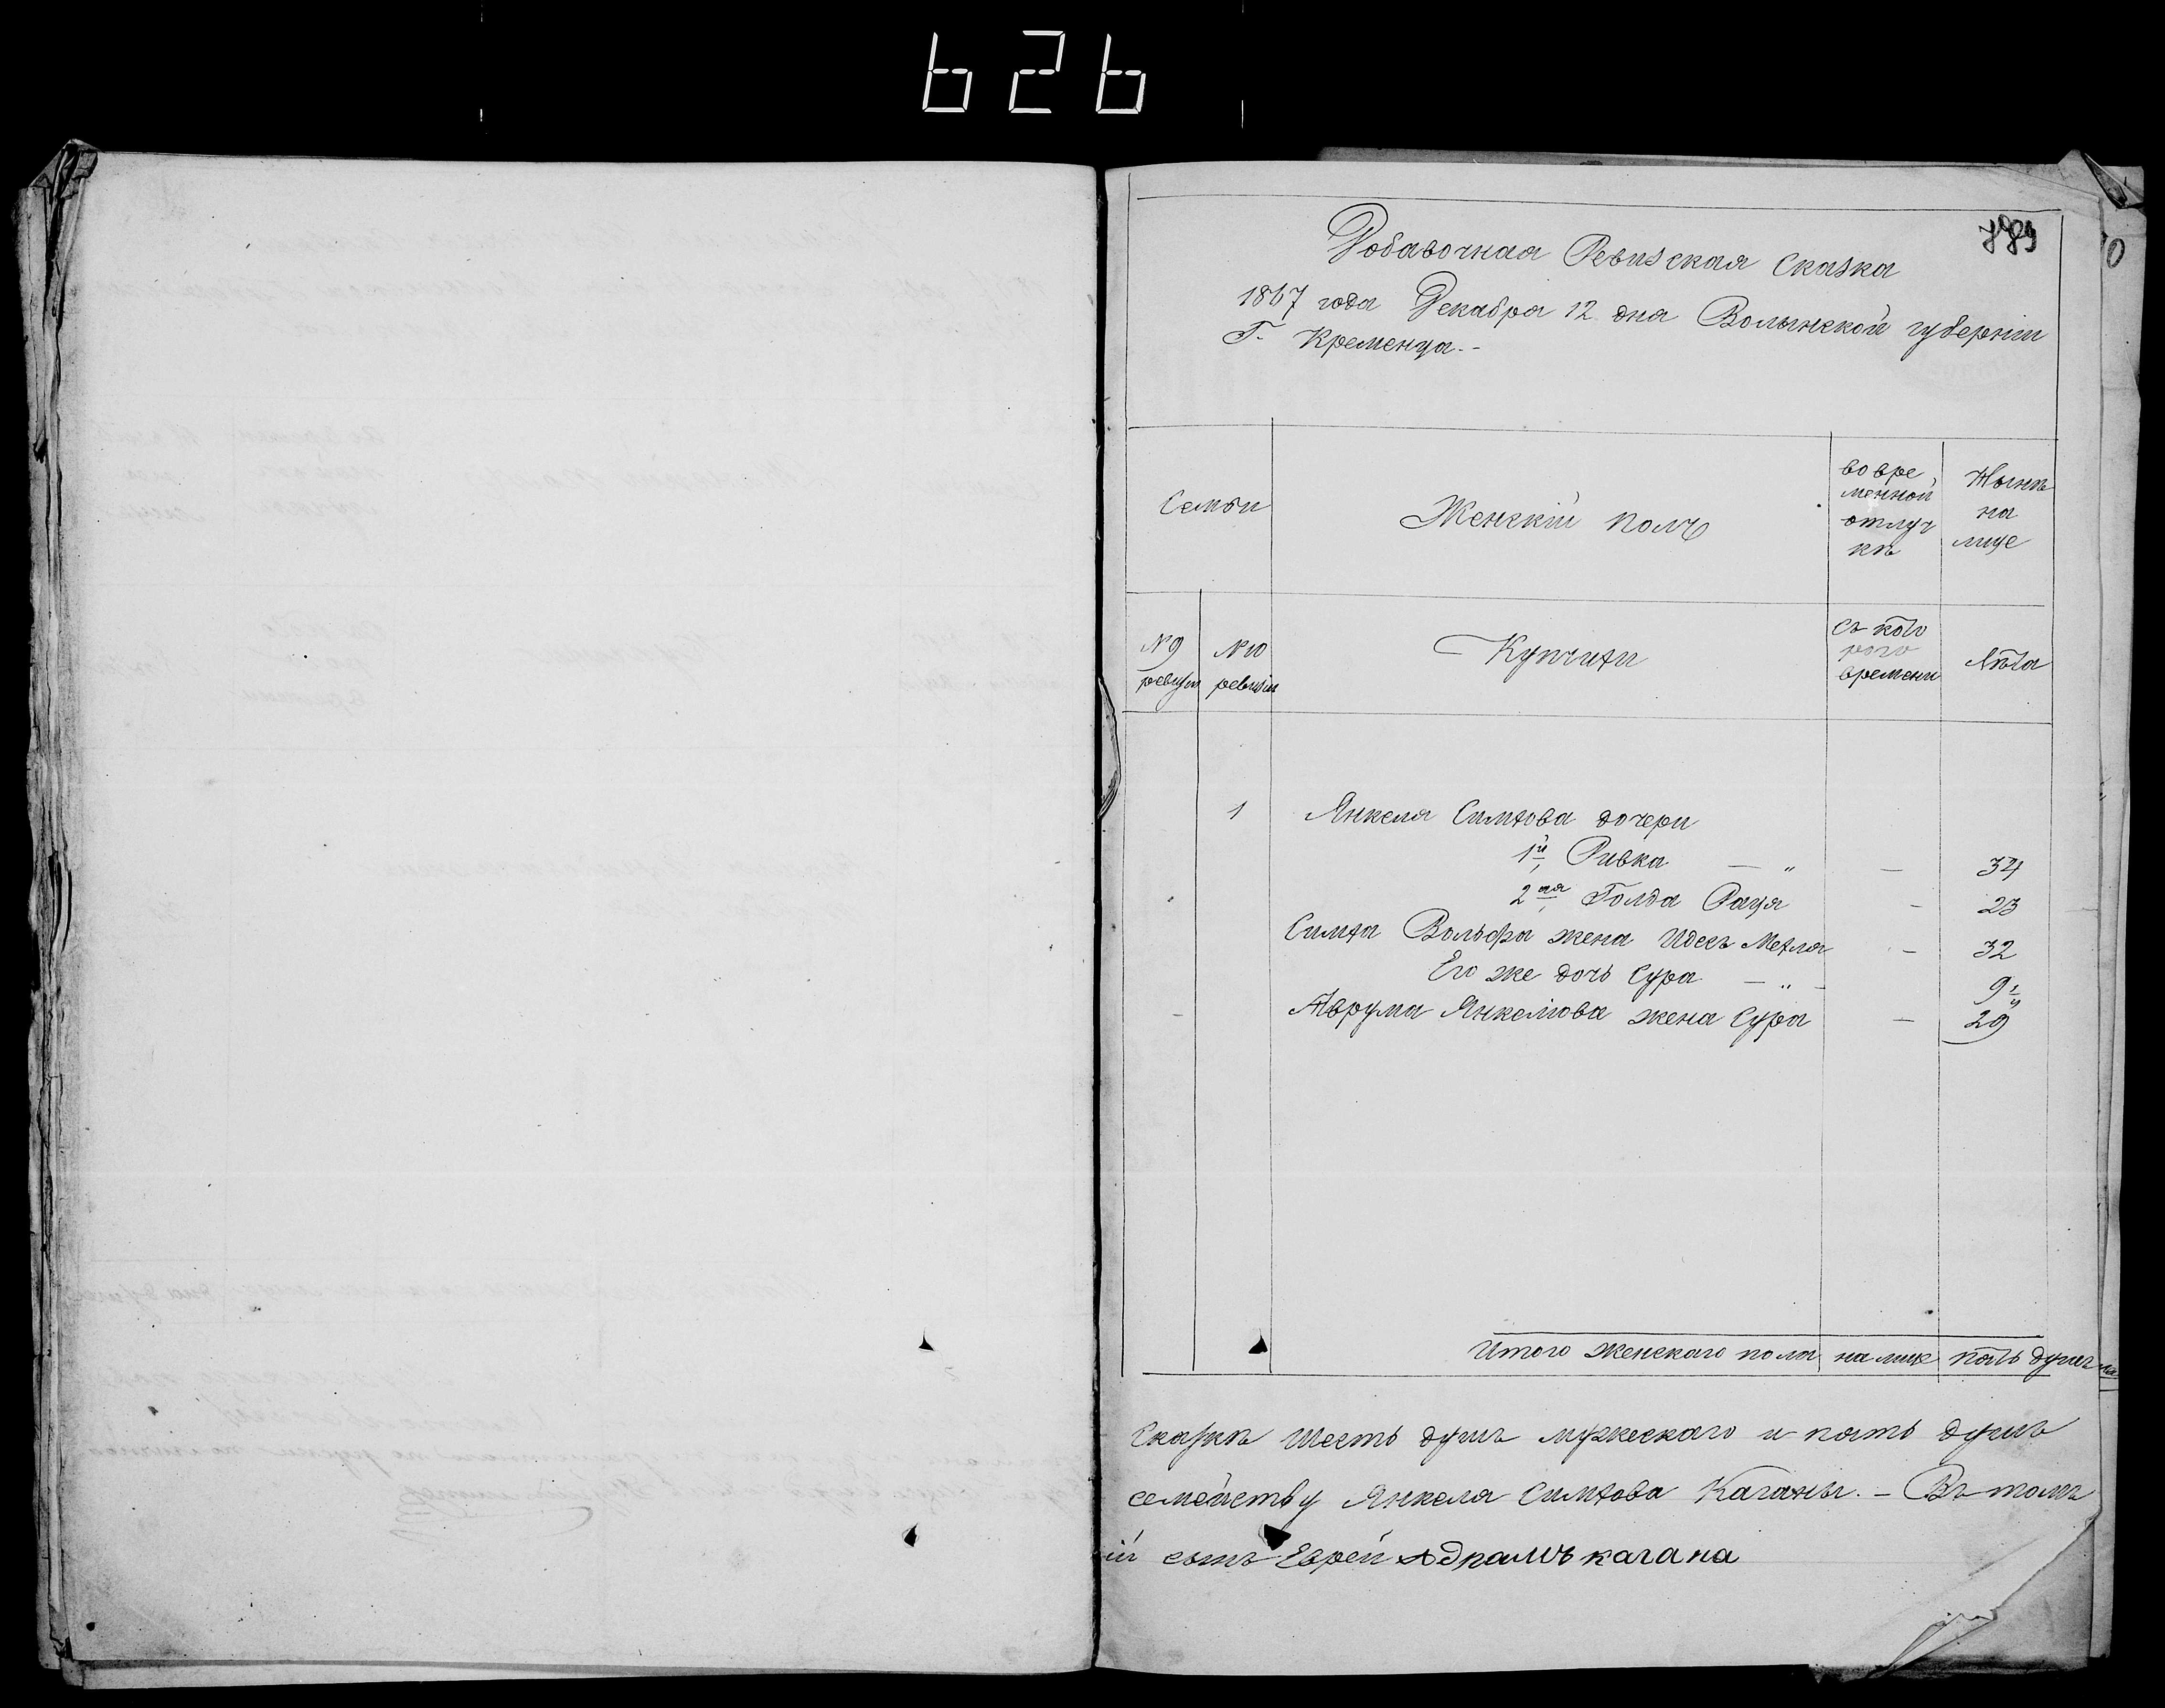 626
789
0
Добавочная Ревизская Сказка
1867 года Декабра 12 дна Волынской губернiи
Г. Кременца.-
Семьи
Женскiй полъ
во вре
менной
отлуч
кѣ
Нынѣ
на
лице
№ 9
ревизiи
№ 10
ревизiи
Купчихи
Съ кото
раго
времени
Лѣта
1 Янкеля Симхова дочери
1й Ривка — „ — 34
2ая Голда Рауя - 23
Симха Вольфа жена Идесъ Метля - 32
Его же дочь Сура — „ - 9½
Аврума Янкелiова жена Сура — 29
Итого Женскаго пола на лице пать душъ на
Сказкѣ шесть душъ мужескаго и пать душъ
семейству Янкеля Симхова Каганы. - Въ томъ
й сынъ Еврей кагана